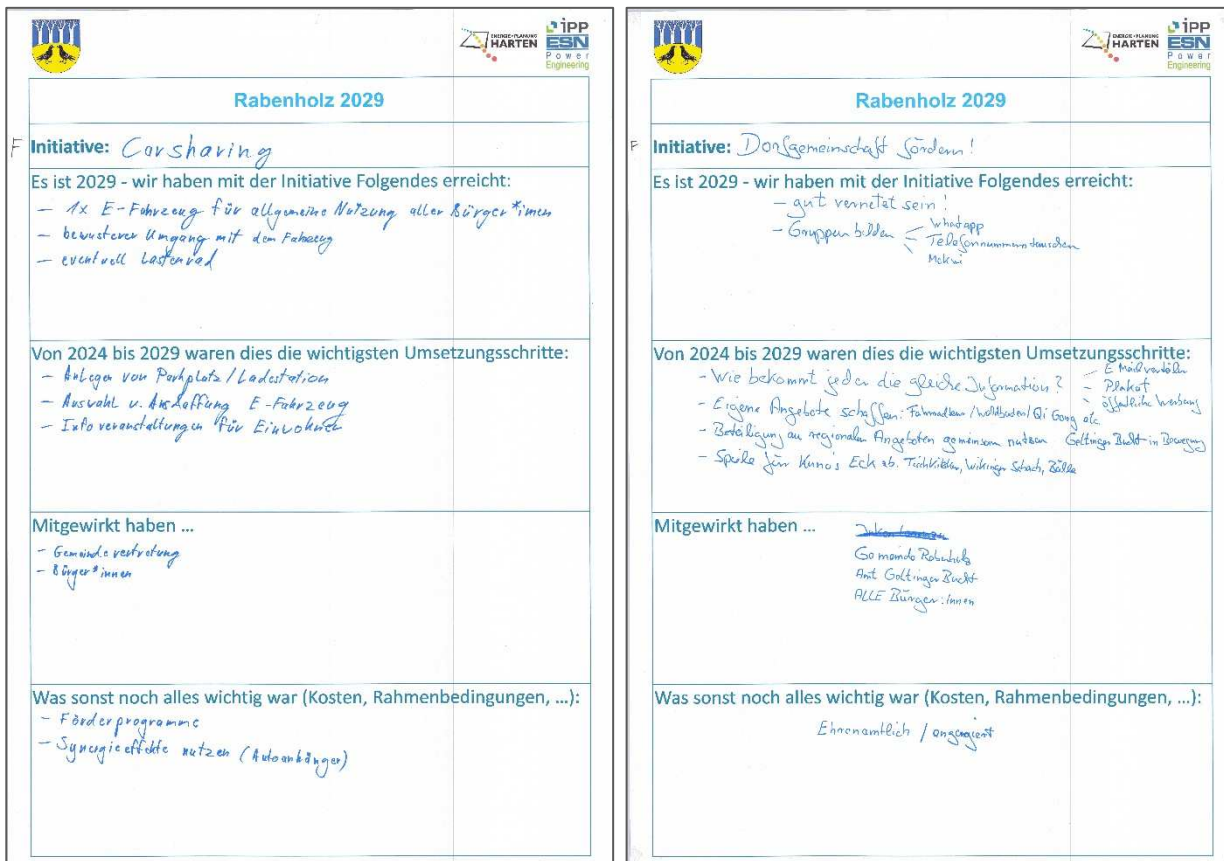 ENERGIE-PLANUNG
HARTEN
iPP
ESN
Power
Engineering
Rabenholz 2029
F Initiative: Carsharing
Es ist 2029 - wir haben mit der Initiative Folgendes erreicht:
- 1x E-Fahrzeug für allgemeine Nutzung aller Bürger*innen
- bewusterer Umgang mit dem Fahrzeug
- eventuell Lastenrad
Von 2024 bis 2029 waren dies die wichtigsten Umsetzungsschritte:
- Anlegen von Parkplatz / Ladestation
- Auswahl u. Anschaffung E-Fahrzeug
- Infoveranstaltungen für Einwohner
Mitgewirkt haben ...
- Gemeindevertretung
- Bürger*innen
Was sonst noch alles wichtig war (Kosten, Rahmenbedingungen, ...):
- Förderprogramme
- Synergieeffekte nutzen (Autoanhänger)
ENERGIE-PLANUNG
HARTEN
iPP
ESN
Power
Engineering
Rabenholz 2029
F Initiative: Dorfgemeinschaft fördern!
Es ist 2029 - wir haben mit der Initiative Folgendes erreicht:
- gut vernetzt sein!
- Gruppen bilden - Whatapp
- Telefonnummern tauschen
Von 2024 bis 2029 waren dies die wichtigsten Umsetzungsschritte:
- Wie bekommt jeder die gleiche Information? - E Mailverteiler
- Plakat
- öffentliche Werbung
- Eigene Angebote schaffen: Fahrradtour / Waldbaden / Qi Gong etc.
- Beteiligung an regionalen Angeboten gemeinsam nutzen Geltinger Bucht in Bewegung
- Spiele für Kuno's Eck zb. Tischkicker, Wikinger Schach, Bälle
Mitgewirkt haben ...
Gemeinde Rabenholz
Amt Geltinger Bucht
ALLE Bürger:innen
Was sonst noch alles wichtig war (Kosten, Rahmenbedingungen, ...):
Ehrenamtlich / engagiert